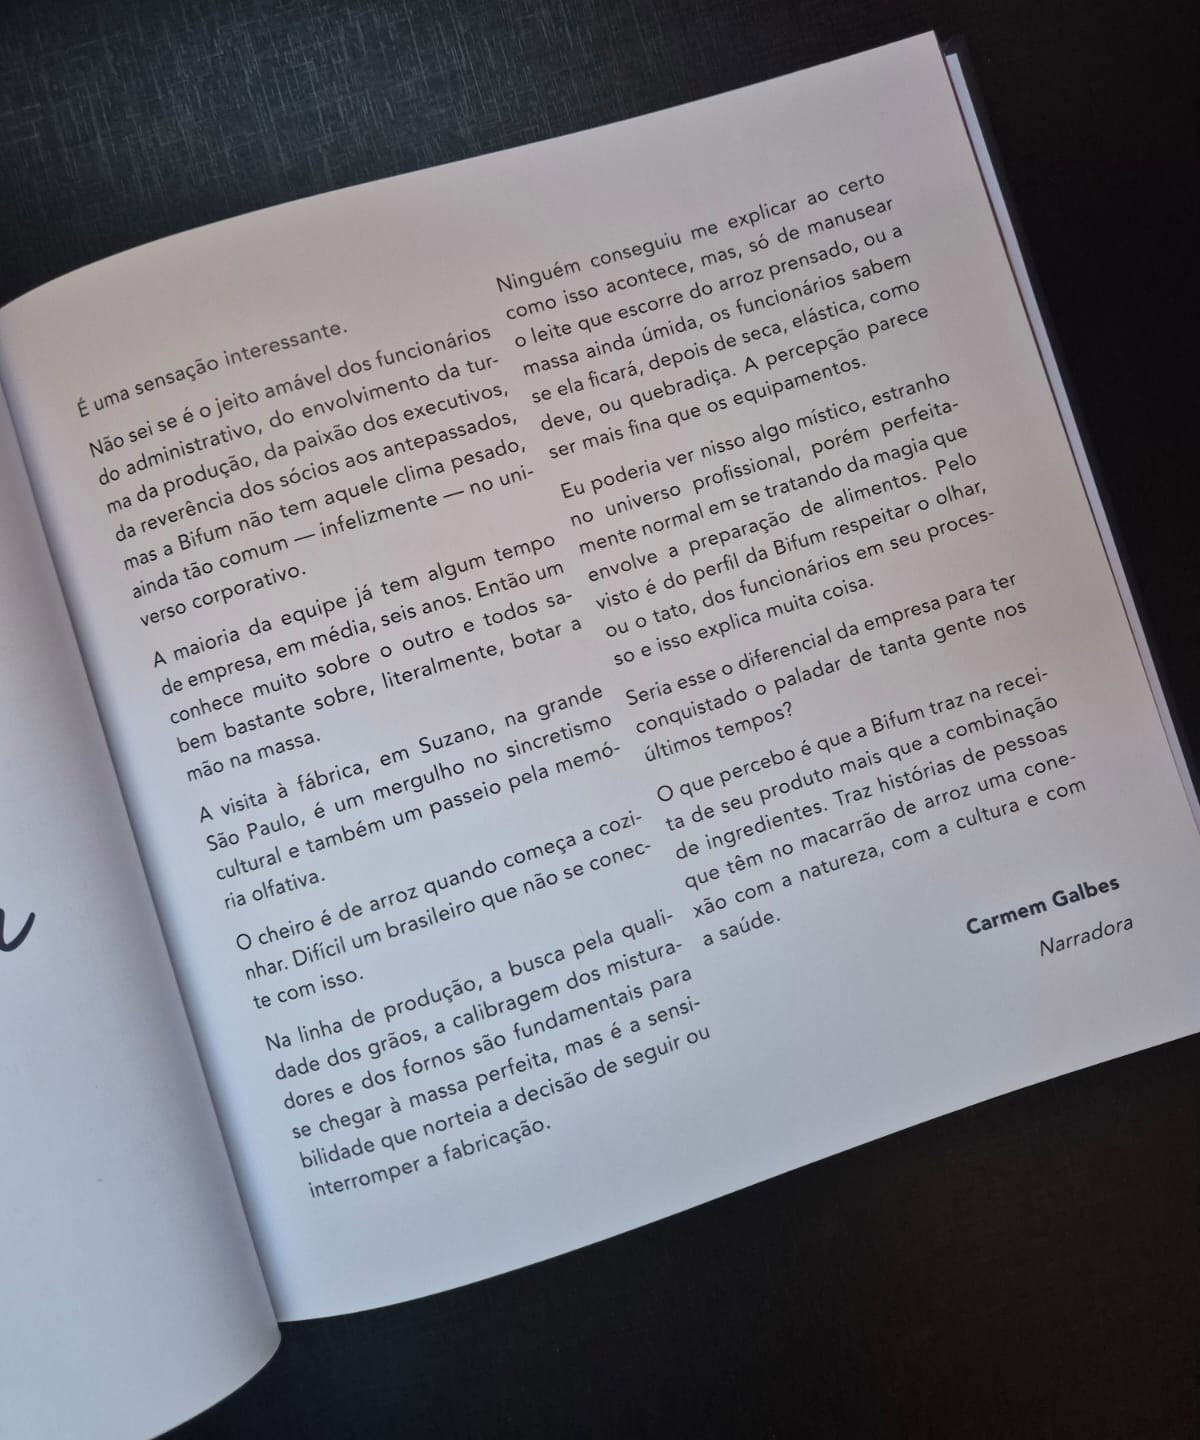 É uma sensação interessante.
Não sei se é o jeito amável dos funcionários
do administrativo, do envolvimento da tur-
ma da produção, da paixão dos executivos,
da reverência dos sócios aos antepassados,
mas a Bifum não tem aquele clima pesado,
ainda tão comum — infelizmente — no uni-
verso corporativo.
A maioria da equipe já tem algum tempo
de empresa, em média, seis anos. Então um
conhece muito sobre o outro e todos sa-
bem bastante sobre, literalmente, botar a
mão na massa.
A visita à fábrica, em Suzano, na grande
São Paulo, é um mergulho no sincretismo
cultural e também um passeio pela memó-
ria olfativa.
O cheiro é de arroz quando começa a cozi-
nhar. Difícil um brasileiro que não se conec-
te com isso.
Na linha de produção, a busca pela quali-
dade dos grãos, a calibragem dos mistura-
dores e dos fornos são fundamentais para
se chegar à massa perfeita, mas é a sensi-
bilidade que norteia a decisão de seguir ou
interromper a fabricação.
Ninguém conseguiu me explicar ao certo
como isso acontece, mas, só de manusear
o leite que escorre do arroz prensado, ou a
massa ainda úmida, os funcionários sabem
se ela ficará, depois de seca, elástica, como
deve, ou quebradiça. A percepção parece
ser mais fina que os equipamentos.
Eu poderia ver nisso algo místico, estranho
no universo profissional, porém perfeita-
mente normal em se tratando da magia que
envolve a preparação de alimentos. Pelo
visto é do perfil da Bifum respeitar o olhar,
ou o tato, dos funcionários em seu proces-
so e isso explica muita coisa.
Seria esse o diferencial da empresa para ter
conquistado o paladar de tanta gente nos
últimos tempos?
O que percebo é que a Bifum traz na recei-
ta de seu produto mais que a combinação
de ingredientes. Traz histórias de pessoas
que têm no macarrão de arroz uma cone-
xão com a natureza, com a cultura e com
a saúde.
Carmem Galbes
Narradora